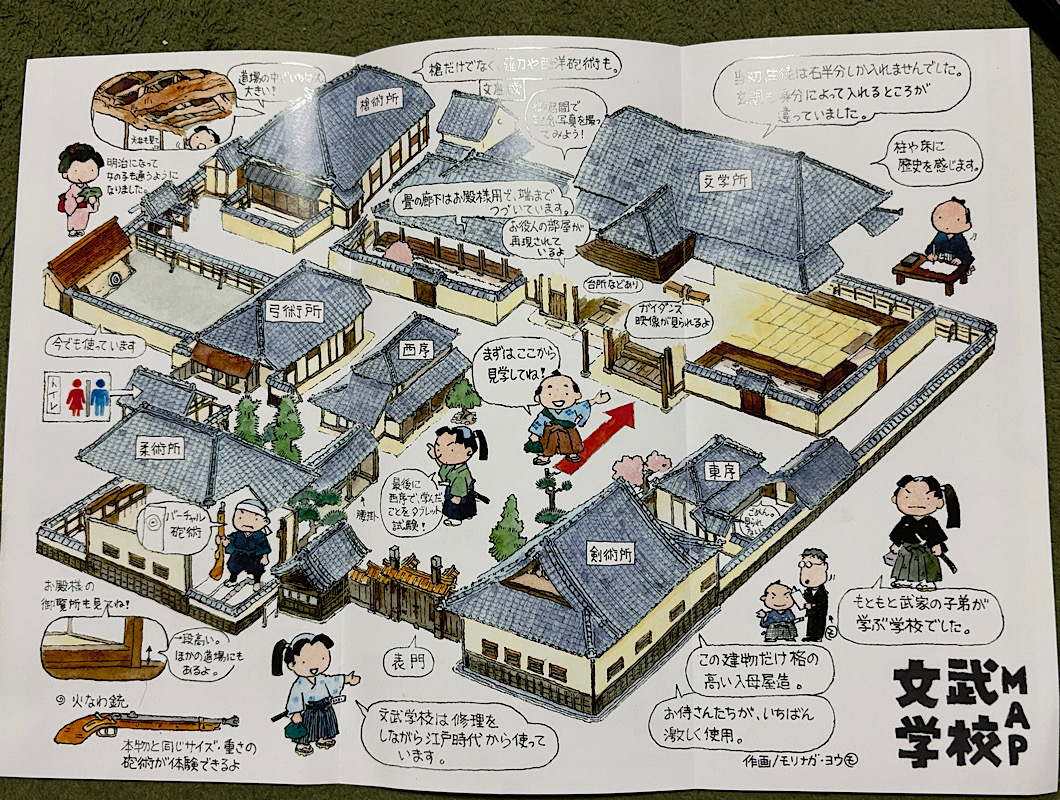 道場の中でいちばん
大きい!
天井も見て
槍術所
槍だけでなく、薙刀や西洋砲術も。
文庫蔵
記念写真を撮っ
てみよう!
生徒は右半分しか入れませんでした。
玄関も身分によって入れるところが
違っていました。
柱や床に
歴史を感じます。
文学所
明治になって
女の子も通うように
なりました。
畳の廊下はお殿様用で、端まで
つづいています。
お役人の部屋が
再現されて
いるよ
台所などあり
ガイダンス
映像が見られるよ
弓術所
今でも使っています
西序
まずはここから
見学してね!
トイレ
柔術所
バーチャル
砲術
腰掛
最後に
西序で、学んだ
ことをタブレット
試験!
東序
ごめん。
見られ
ない
剣術所
お殿様の
御覧所も見てね!
一段高い。
ほかの道場にも
あるよ。
表門
もともと武家の子弟が
学ぶ学校でした。
この建物だけ格の
高い入母屋造。
お侍さんたちが、いちばん
激しく使用。
火なわ銃
本物と同じサイズ・重さの
砲術が体験できるよ
文武学校は修理を
しながら江戸時代から使って
います。
作画/モリナガ・ヨウ
文武学校
MAP